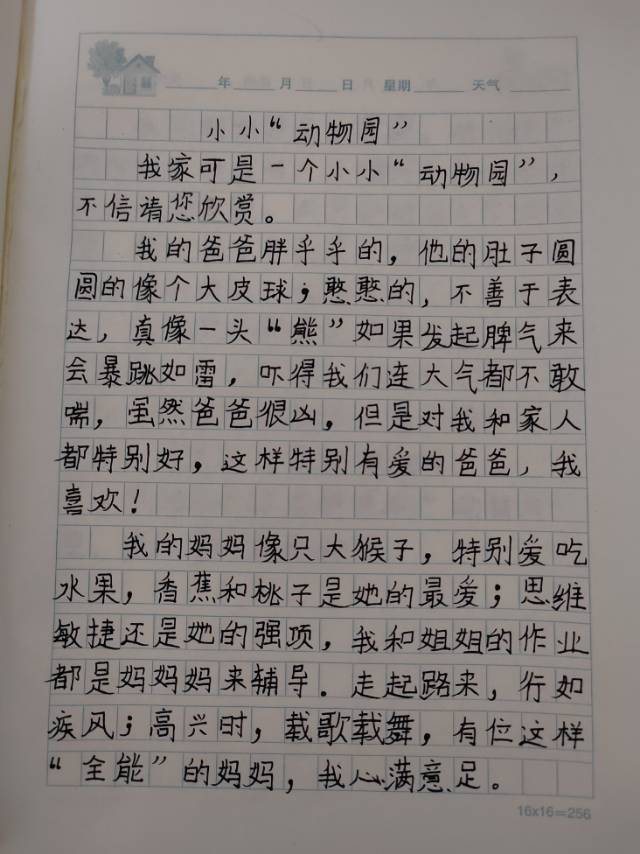 年 月 日 星期 天气
小小“动物园”
我家可是一个小小“动物园”，
不信请您欣赏。
我的爸爸胖乎乎的，他的肚子圆
圆的像个大皮球；憨憨的，不善于表
达，真像一头“熊”如果发起脾气来
会暴跳如雷，吓得我们连大气都不敢
喘，虽然爸爸很凶，但是对我和家人
都特别好，这样特别有爱的爸爸，我
喜欢！
我的妈妈像只大猴子，特别爱吃
水果，香蕉和桃子是她的最爱；思维
敏捷还是她的强项，我和姐姐的作业
都是妈妈妈来辅导．走起路来，行如
疾风；高兴时，载歌载舞，有位这样
“全能”的妈妈，我心满意足。
16x16=256